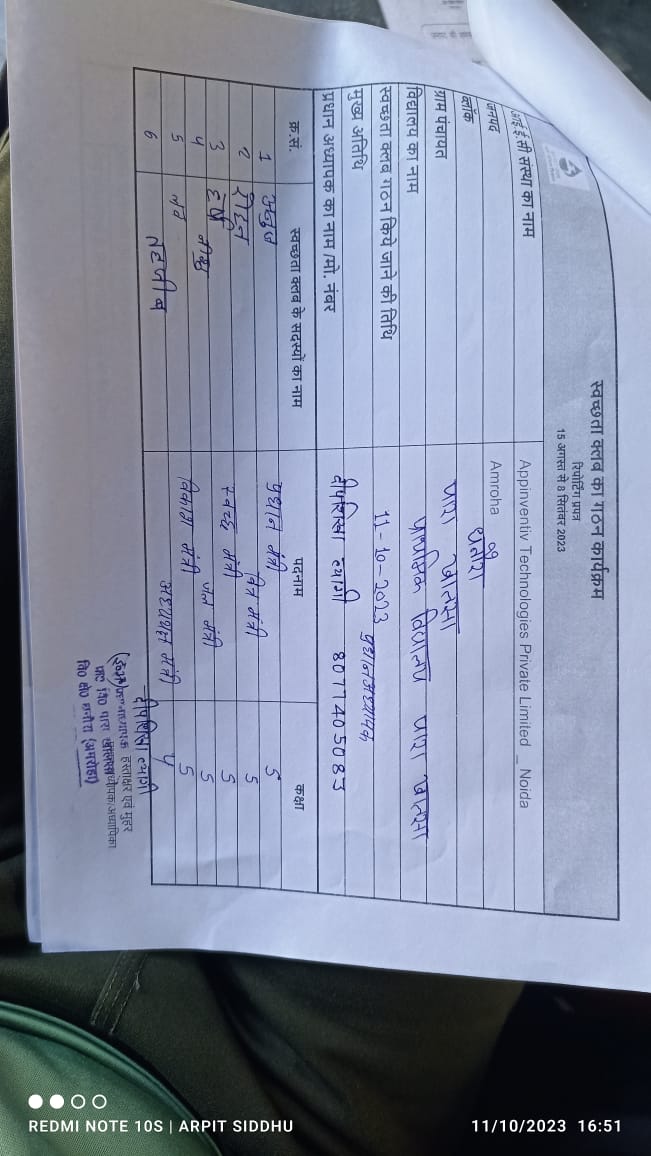 स्वच्छता क्लब का गठन कार्यक्रम
रिपोर्टिंग प्रपत्र
15 अगस्त से 8 सितंबर 2023
आई ई सी संस्था का नाम Appinventiv Technologies Private Limited _ Noida
जनपद Amroha
ब्लॉक धनौरा
ग्राम पंचायत पारा खालसा
विद्यालय का नाम प्राथमिक विद्यालय पारा खालसा
स्वच्छता क्लब गठन किये जाने की तिथि 11-10-2023
मुख्य अतिथि प्रधानअध्यापक
प्रधान अध्यापक का नाम /मो. नंबर दीपशिखा त्यागी 8077405083
क्र.सं. स्वच्छता क्लब के सदस्यों का नाम पदनाम कक्षा
1 अनुज प्रधान मंत्री 5
2 रोहन वित्त मंत्री 5
3 हर्ष स्वच्छ मंत्री 5
4 जल मंत्री 5
5 विकास मंत्री 5
6 तहजीब मंत्री 4
दीपशिखा त्यागी
हस्ताक्षर एवं मुहर
वि० क्षे० धनौरा (अमरोहा)
REDMI NOTE 10S | ARPIT SIDDHU
11/10/2023 16:51